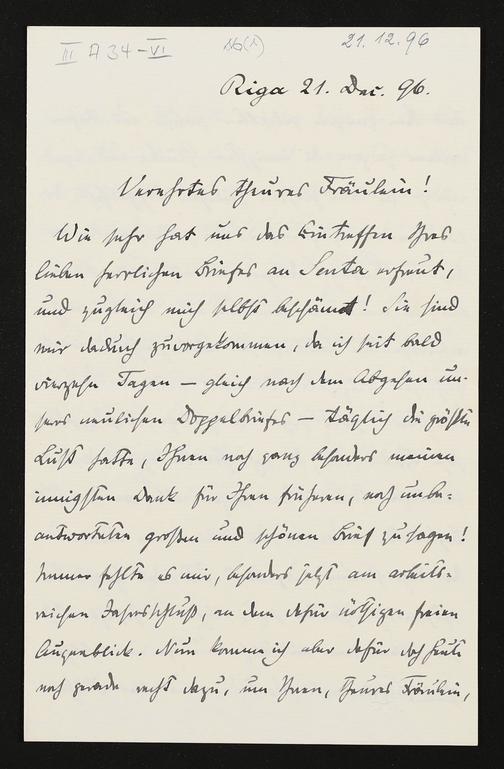 III A 34-VI
21.12.96
Riga 21. Dec. 96.
Verehrtes theures Fräulein!
Wie sehr hat uns das Eintreffen Ihres
lieben herrlichen Briefes an Senta erfreut,
und zugleich mich selbst beschämt! Sie sind
mir dadurch zuvorgekommen, da ich seit bald
vierzehn Tagen – gleich nach dem Abgehen un-
sers neulichen Doppelbriefes – täglich die größte
Lust hatte, Ihnen noch ganz besonders meinen
innigsten Dank für Ihren früheren, noch unbe-
antworteten großen und schönen Brief zu sagen!
Immer fehlte es mir, besonders jetzt am arbeits-
reichen Jahresschluß, an dem dafür nöthigen freien
Augenblick. Nun komme ich aber dafür doch heute
noch gerade recht dazu, um Ihnen, theures Fräulein,